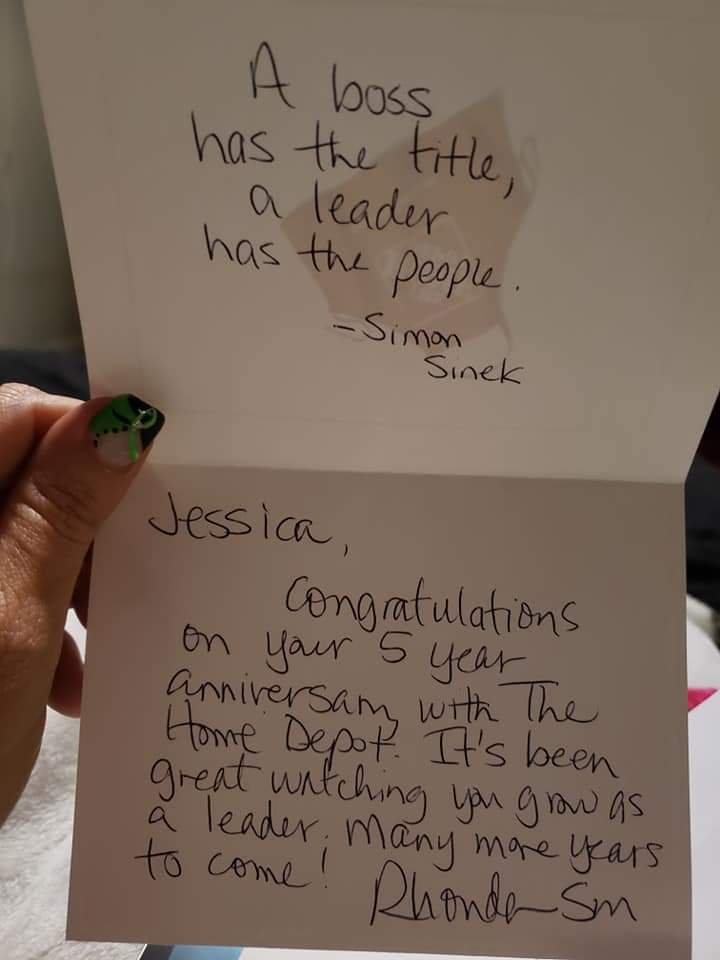 A boss
has the title,
a leader
has the people.
-Simon
Sinek
Jessica,
Congratulations
on your 5 year
anniversary with The
Home Depot. It's been
great watching you grow as
a leader. Many more years
to come!
Rhonda Sm